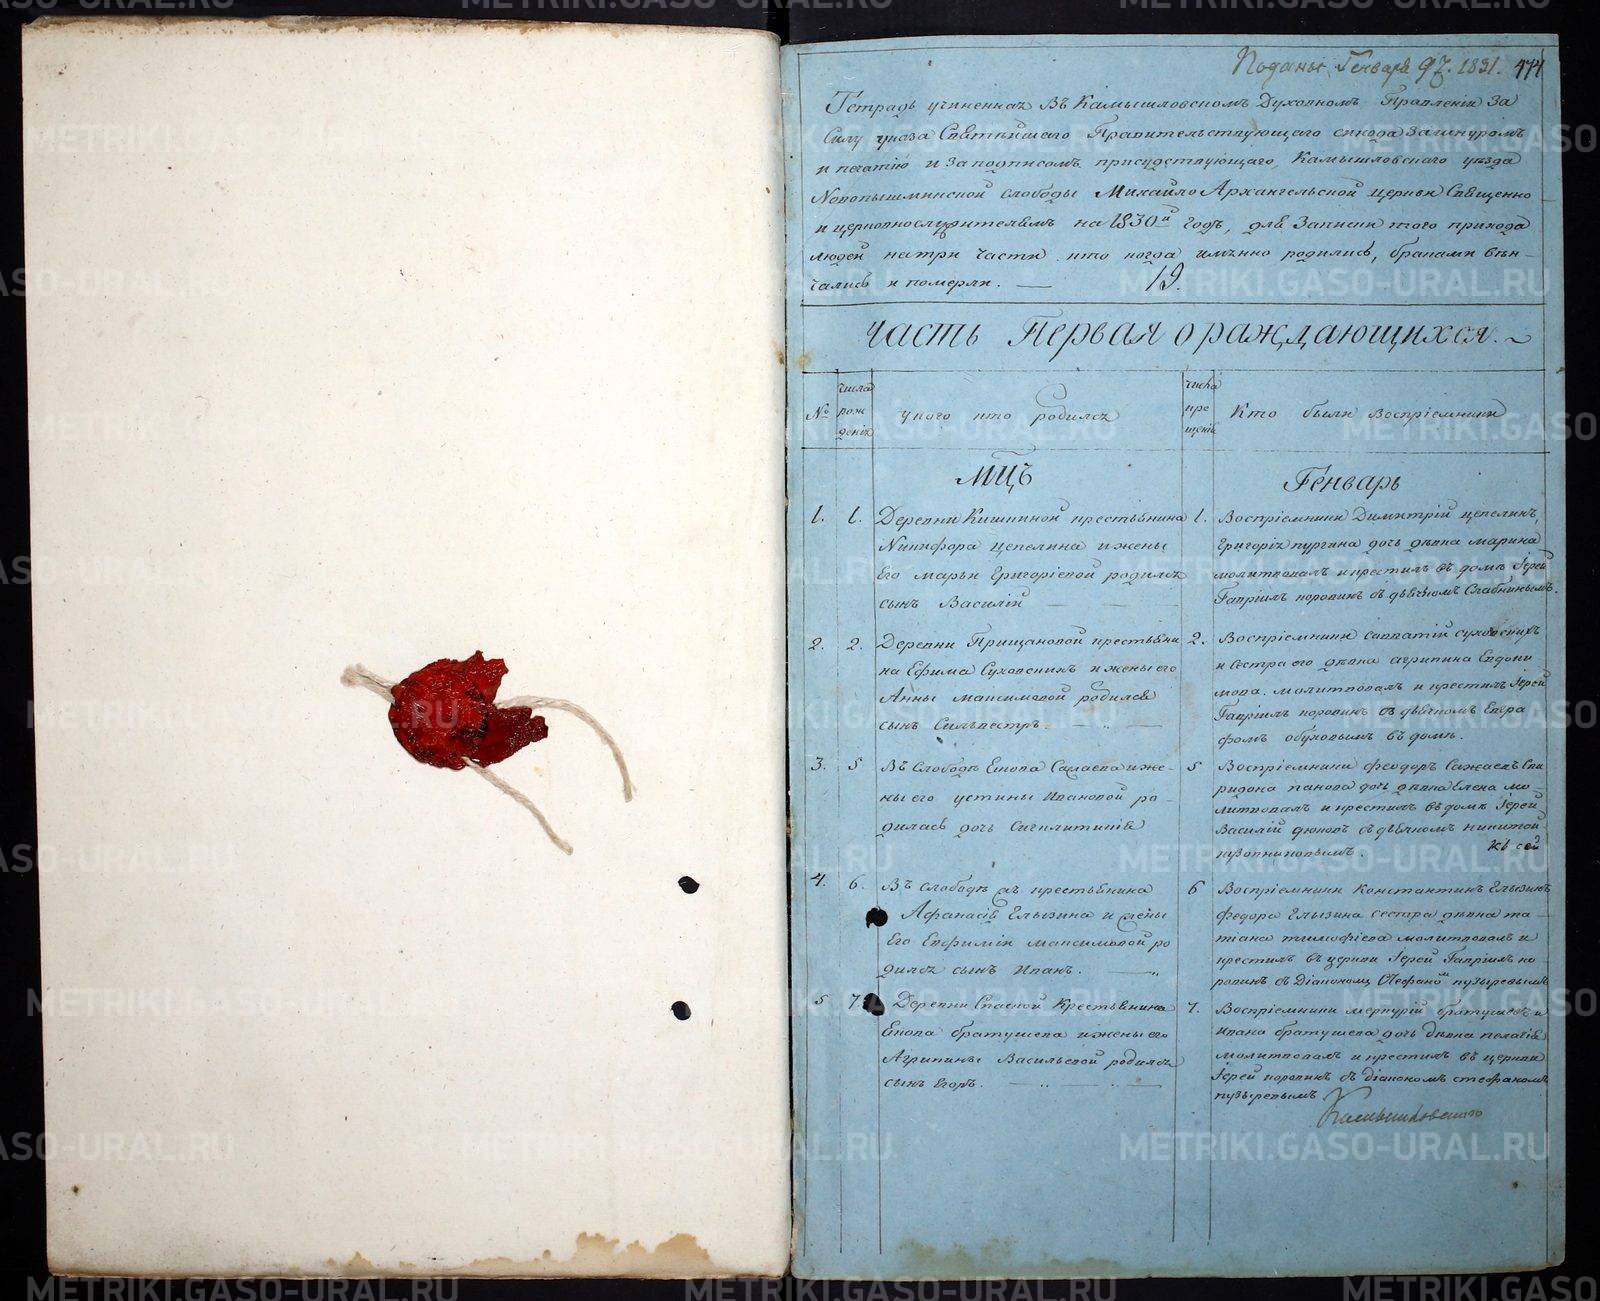 Поданы Генваря 9 ч. 1831. 474
Тетрадь учиненная въ Камышловскомъ Духовномъ Правленіи за
Силу указа Святѣйшаго Правительствующаго синода зашнуромъ
и печатію и за подписомъ присудствующаго, Камышловскаго уѣзда
Новопышминской слободы Михайло Архангельской церкви Священно
и церковнослужителямъ на 1830й годъ, для Записки того прихода
людей на три части кто когда имѣнно родились, браками вѣн-
чались и померли. — 19.
Часть Первая о раждающихся.
№
числа рож денія
у кого кто родился
числа кре щенія
Кто были Воспріемники
Мцъ
Генварь
1. 1. Деревни Кишкиной крестьянина
Никифора Цепелина и жены
Его Марьи Григоріевой родился
сынъ Василій
1. Воспріемники Димитрій цепелинъ,
Григорія пургина дочь дѣвка марина
молитвовалъ и крестилъ въ домѣ Іерей
Гавріилъ коровинъ съ дьячкомъ Слабнинымъ.
2. 2. Деревни Прищановой крестьяни
на Ефима Суховскихъ и жены его
Анны Максимовой родился
сынъ Сильвестръ
2. Воспріемники савватій суховскихъ
и сестра его дѣвка агрипина Евдоки
мова. молитвовалъ и крестилъ Іерей
Гавріилъ коровинъ съ дьячкомъ Евгра
фомъ обуховымъ въ домѣ.
3. 5 Въ Слободѣ Енова Сажаева и же-
ны его устины Ивановой ро-
дилась дочь Сигклитикія
5 Воспріемники феодоръ Сажаевъ Спи
ридона панова дочь дѣвка Елена мо-
литвовалъ и крестилъ въ домѣ Іерей
Василій дюковъ съ дьячкомъ никитой
Къ сей
4. 6. Въ слободѣ съ крестьянина
Афанасія Елызина и жены
Его Евфиміи максимовой ро
дился сынъ Иванъ.
6 Воспріемники Константинъ Елызинъ
федора Елызина сестра дѣвка та
тиана тимофіева молитвовалъ и
крестилъ въ церкви Іерей Гавріилъ ко-
ровинъ съ Діакономъ Стефаномъ пузыревымъ
5 7. Деревни Спаской Крестьянина
Енова братушева и жены его
Агрипины Васильевой родился
сынъ Егоръ.
7. Воспріемники меркурій братушевъ и
Ивана братушева дочь дѣвка пелагія
молитвовалъ и крестилъ въ церкви
Іерей коровинъ съ діакономъ стефаномъ
пузыревымъ
Камышловскаго
METRIKI.GASO-URAL.RU